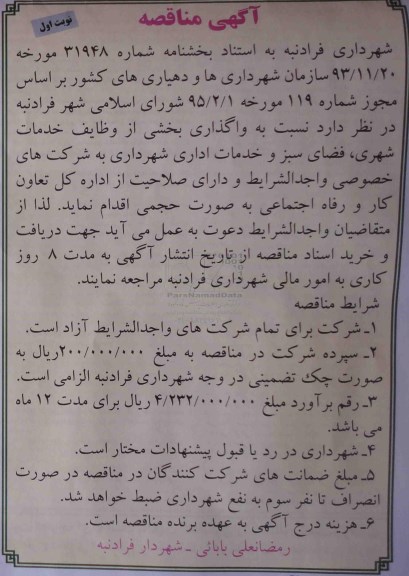 آگهی مناقصه
نوبت اول
شهرداری فرادنبه به استناد بخشنامه شماره ۳۱۹۴۸ مورخه
۹۳/۱۱/۲۰ سازمان شهرداری ها و دهیاری های کشور بر اساس
مجوز شماره ۱۱۹ مورخه ۹۵/۲/۱ شورای اسلامی شهر فرادنبه
در نظر دارد نسبت به واگذاری بخشی از وظایف خدمات
شهری، فضای سبز و خدمات اداری شهرداری به شرکت های
خصوصی واجدالشرایط و دارای صلاحیت از اداره کل تعاون
کار و رفاه اجتماعی به صورت حجمی اقدام نماید. لذا از
متقاضیان واجدالشرایط دعوت به عمل می آید جهت دریافت
و خرید اسناد مناقصه از تاریخ انتشار آگهی به مدت ۸ روز
کاری به امور مالی شهرداری فرادنبه مراجعه نمایند.
ParsNamadData
شرایط مناقصه
۱ـ شرکت برای تمام شرکت های واجدالشرایط آزاد است.
۲ـ سپرده شرکت در مناقصه به مبلغ ۲۰۰/۰۰۰/۰۰۰ریال به
صورت چک تضمینی در وجه شهرداری فرادنبه الزامی است.
۳ـ رقم برآورد مبلغ ۴/۲۳۲/۰۰۰/۰۰۰ ریال برای مدت ۱۲ ماه
می باشد.
۴ـ شهرداری در رد یا قبول پیشنهادات مختار است.
۵ـ مبلغ ضمانت های شرکت کنندگان در مناقصه در صورت
انصراف تا نفر سوم به نفع شهرداری ضبط خواهد شد.
۶ـ هزینه درج آگهی به عهده برنده مناقصه است.
رمضانعلی بابائی ـ شهردار فرادنبه